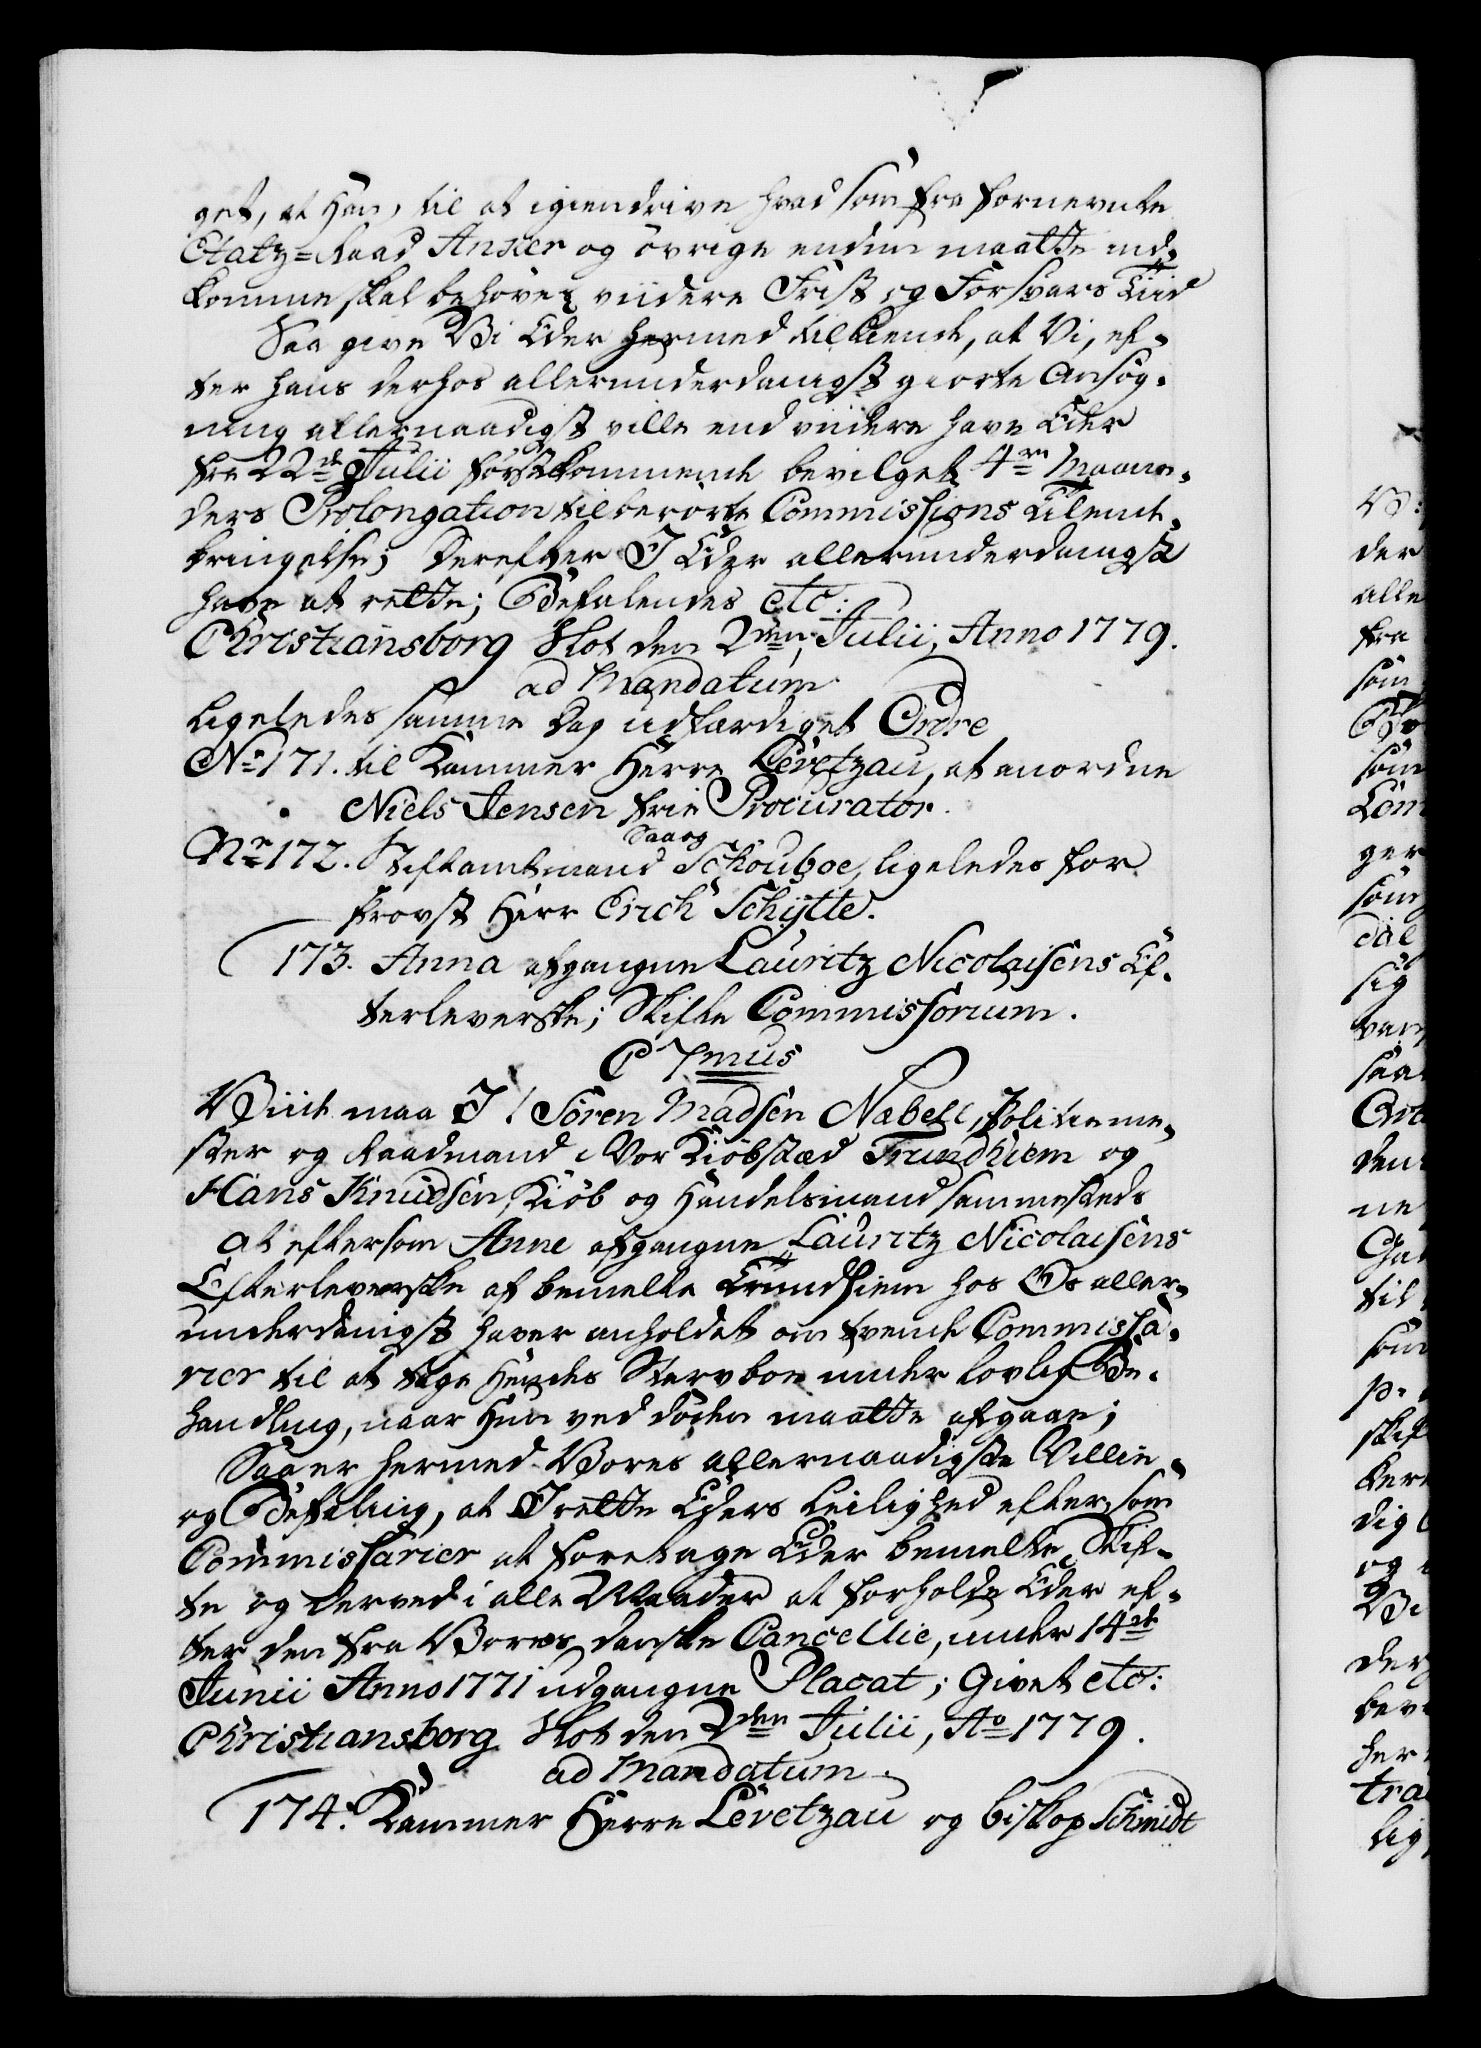 get, at Han, til at igiendrive hvad som fra fornevnte
Etatz-Raad Anker og övrige endnu maatte ind-
komme skal behöve viidere Frist og Forsvars Tiid
Saa give Vi Eder hermed tilkiende, at Vi, ef-
ter hans derhos allerunderdanigst giorte Ansög-
ning allernaadigst ville end viidere have Eder
fra 22de Julii förstkommende bevilget 4re Maane-
ders Prolongation til berörte Commissions tilende-
bringelse; Derefter I Eder allerunderdanigst
have at rette; Befalendes etc:
Christiansborg Slot den 2den Julii, Anno 1779.
ad Mandatum
Ligeledes samme Dag udfærdiget Ordre
No 171. til Kammer Herre Levetzau, at anordne
Niels Jensen frie Procurator.
Saa og
Nr 172. Stiftamtmand Schouboe, ligeledes for
Provst Herr Erich Schytte.
173. Anna afgangne Lauritz Nicolaisens Ef-
terleverske; Skifte Commissorium.
C 7mus
Viide maa I / Sören Madsen Næbell, Politieme-
ster og Raadmand i Vor Kiöbstæd Trundhiem og
Hans Knudsen, Kiöb og Handelsmand sammesteds
At eftersom Anne afgangne Lauritz Nicolaisens
Efterleverske af bemelte Trundhiem hos Os aller-
underdanigst haver anholdet om tvende Commissa-
rier til at tage Hendes Stervboe under lovlig Be-
handling, naar Hun ved döden maatte afgaae;
Saa er hermed Vores allernaadigste Villie
og Befaling, at I rette Eders Leilighed efter, som
Commissarier at foretage Eder bemelte Skif-
te og derved i alle Maader at forholde Eder ef-
ter den fra Vores danske Cancellie, under 14de
Junii Anno 1771 udgangne Placat; Givet etc:
Christiansborg Slot den 2den Julii, Ao 1779.
ad Mandatum.
174. Kammer Herre Levetzau og biskop Schmidt